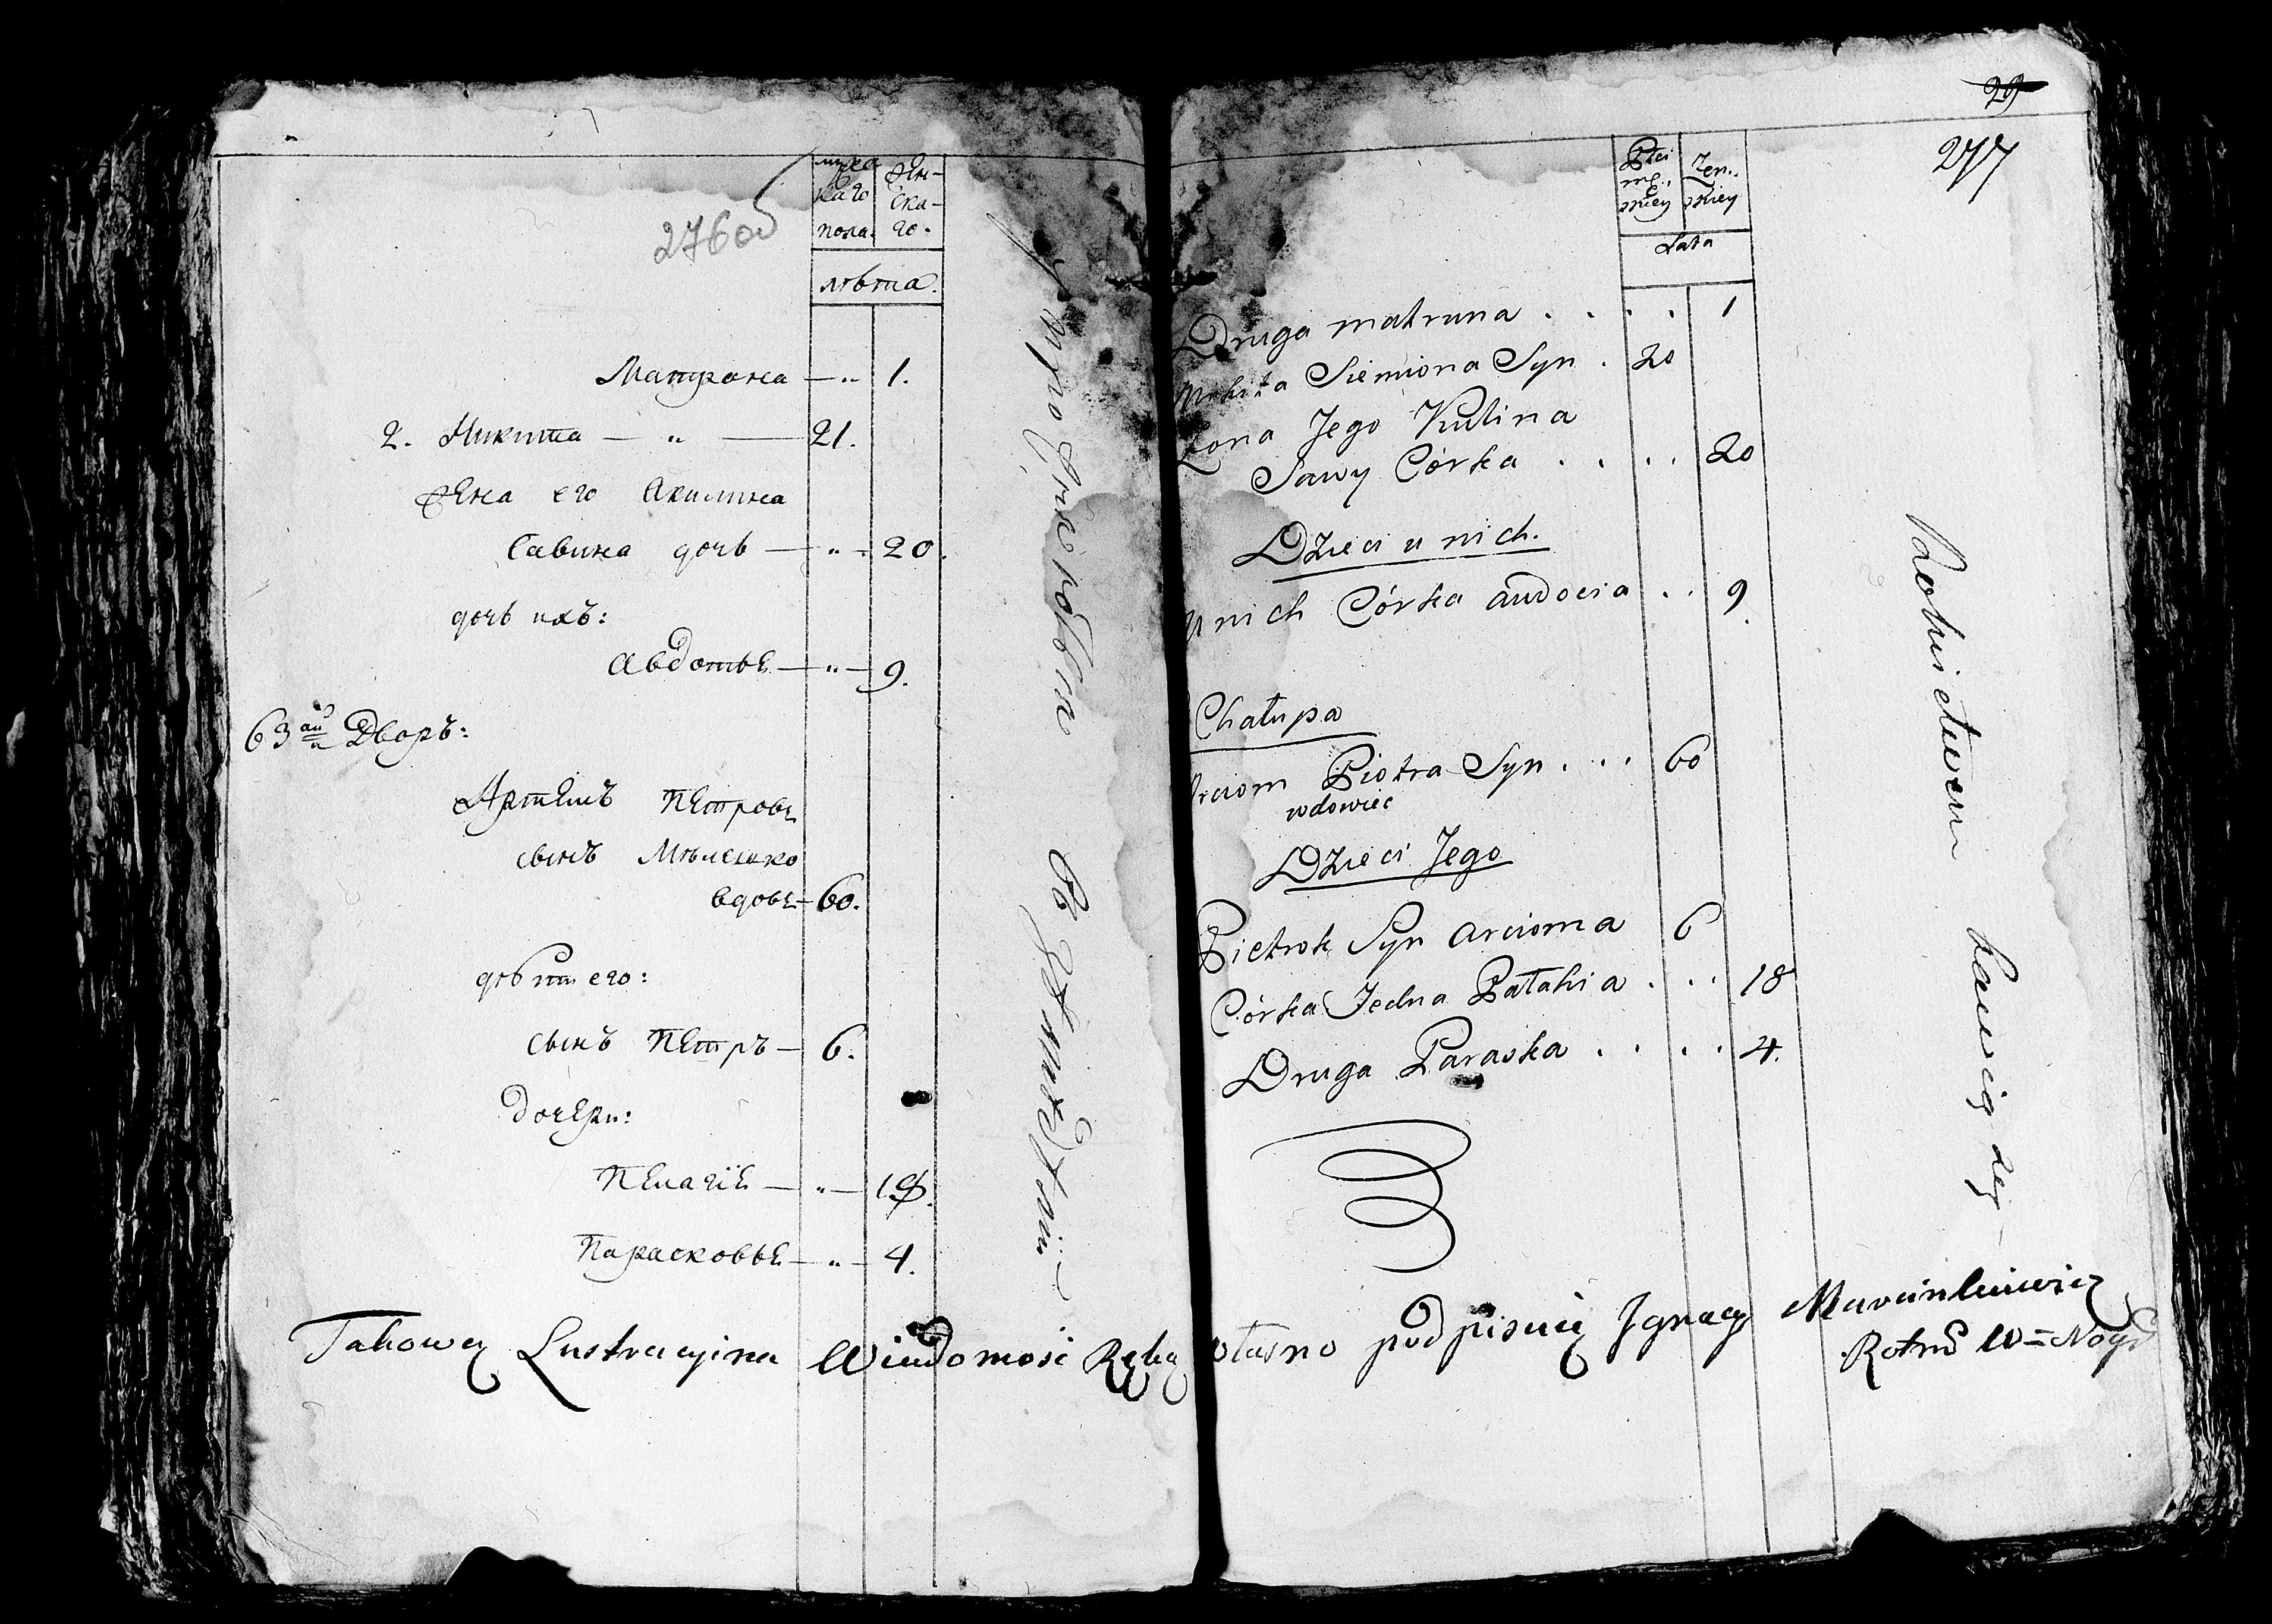 276об
мужес
каго
пола.
жен-
ска-
го.
лѣта.
Матрона — „ 1.
2. Никита — „ — 21.
жена его Акилина
Савина дочь — „ — 20.
дочь ихъ:
Авдотья — „ — 9.
63 Дворъ:
Артемъ Петровъ
сынъ Мѣлешко
вдовъ — 60.
дѣти его:
сынъ Петръ — 6.
дочери:
Пелагія — „ — 18.
Парасковья — „ — 4.
29
277
Płci
męz.
skiey
Zen.
skiey
Lata
Druga matruna . . . . 1
Mikita Siemiona Syn . 20
Żona Jego Kulina
Sawy Córka . . . . 20
Dzieci u nich.
U nich Córka audocia . . 9.
Chałupa
Arciom Piotra Syn . . . 60
wdowiec
Dzieci Jego
Pietrok Syn arcioma 6
Córka Jedna Pałahia . . . 18
Druga Paraska . . . . 4.
Takową Lustracyina Wiadomość Ręką własno podpisuię Ignacy Marcinkiewicz